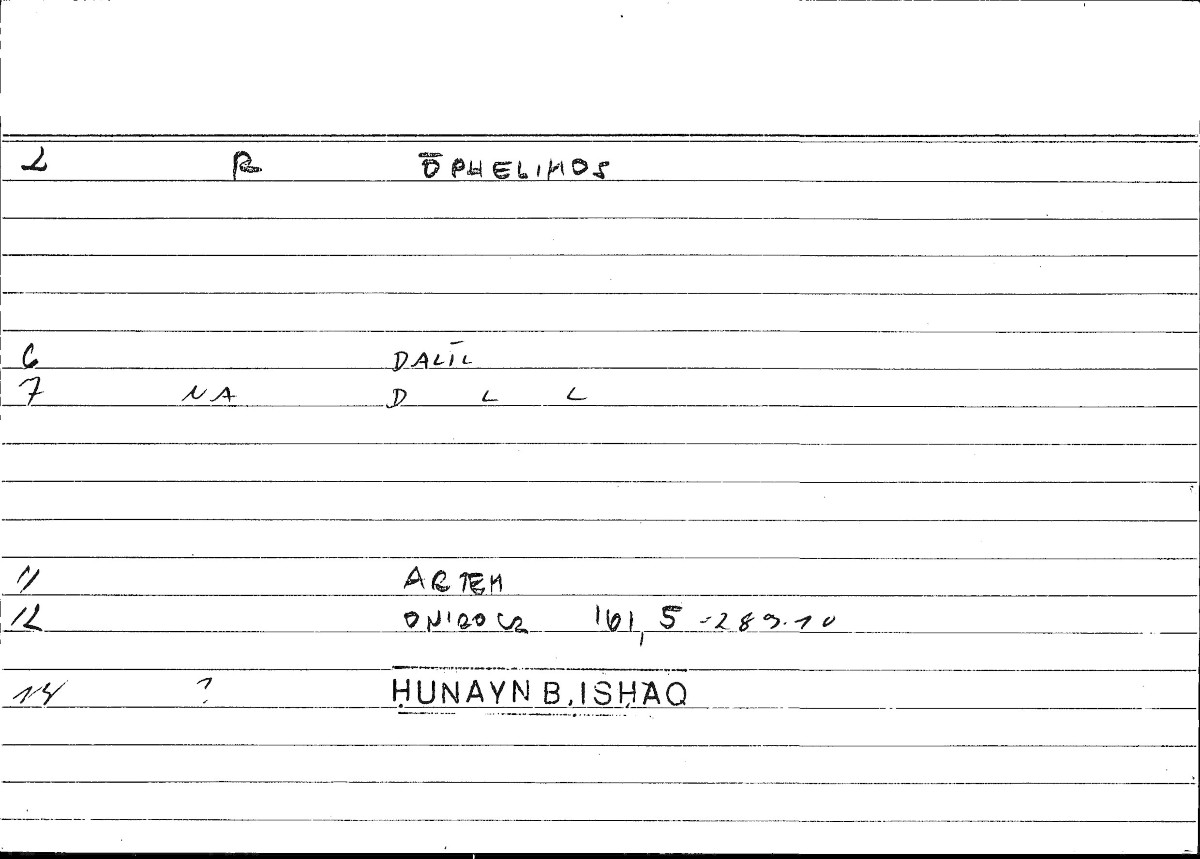 2 R ŌPHELIMOS
6 DALĪL
7 NA D L L
11 ARTEM
12 ONIROCR 161,5-289.10
14 ? ḤUNAYN B. ISḤĀQ